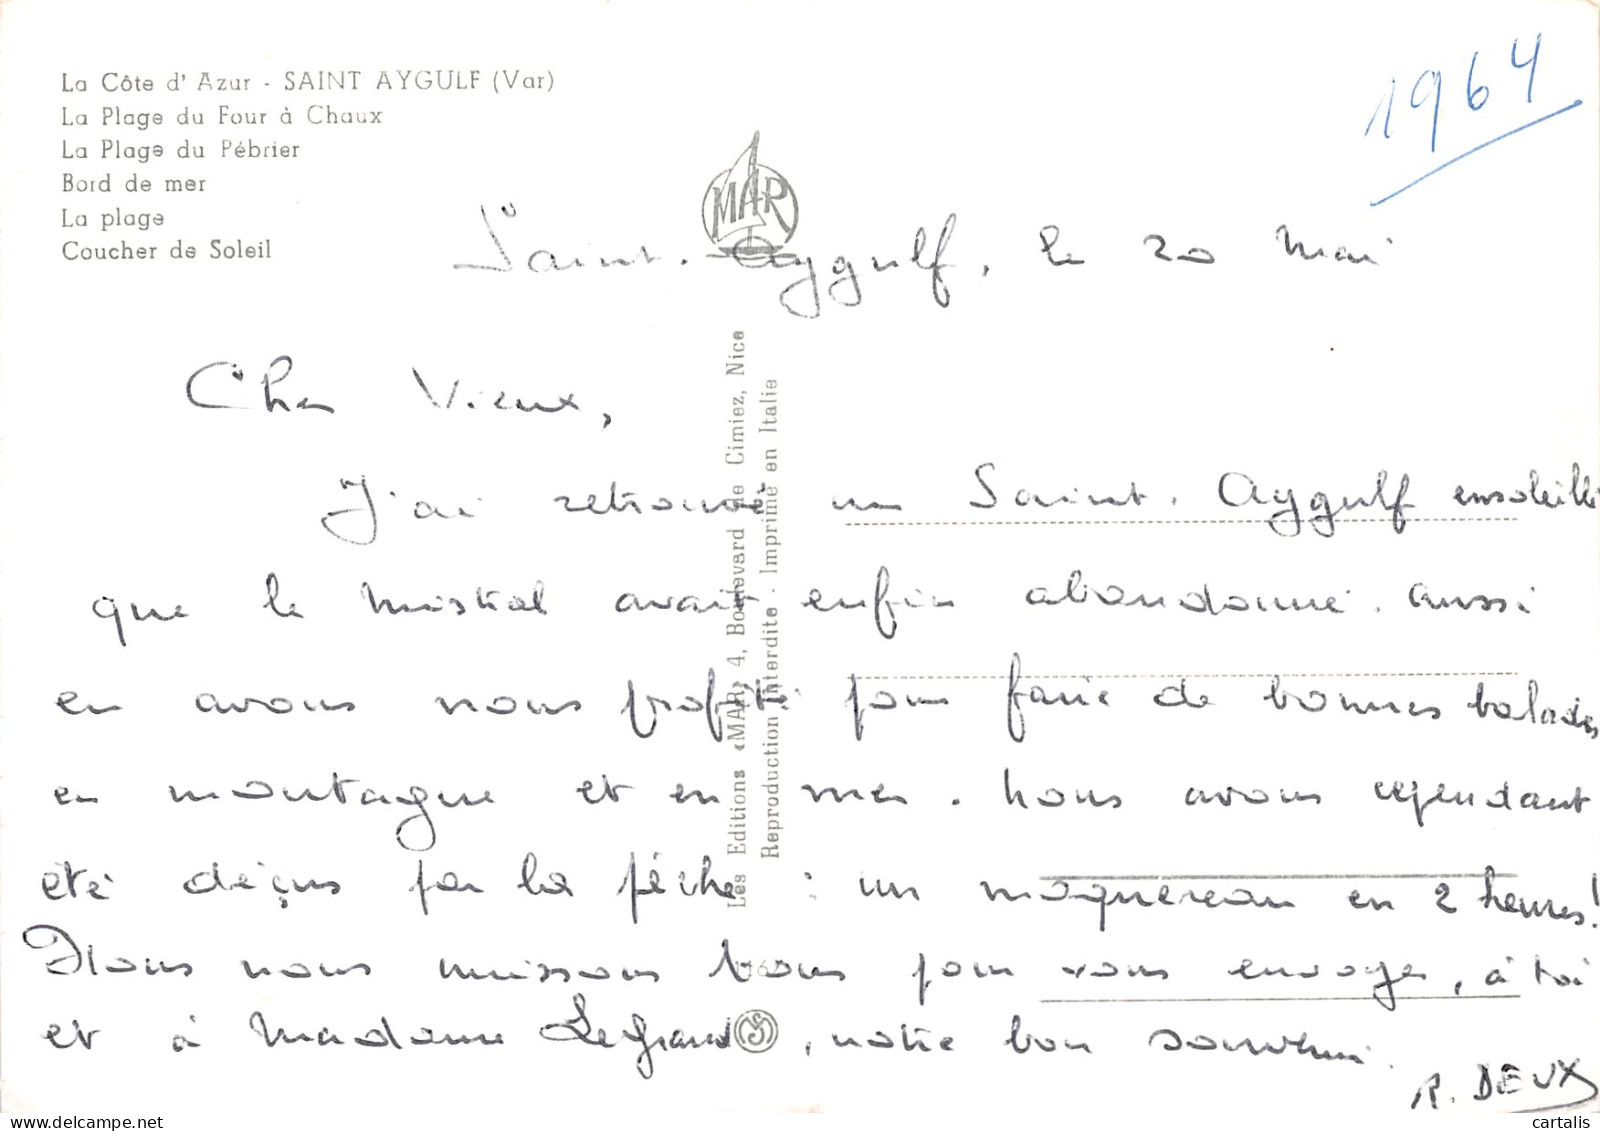 La Côte d'Azur - SAINT AYGULF (Var)
La Plage du Four à Chaux
La Plage du Pébrier
Bord de mer
La plage
Coucher de Soleil
1964
MAR
Saint. Aygulf, le 20 Mai
Cher Vieux,
J'ai retrouvé un Saint. Aygulf ensoleillé
que le mistral avait enfin abandonné. aussi
en avons nous profité pour faire de bonnes balades
en montagne et en mer. Nous avons cependant
été déçus par la pêche : un maquereau en 2 heures!
Nous nous unissons tous pour vous envoyer, à toi
et à Madame Legrand, notre bon souvenir.
R. DEUX
Les Editions «MAR» 4, Boulevard de Cimiez, Nice
Reproduction Interdite - Imprimé en Italie
delcampe.net
cartalis